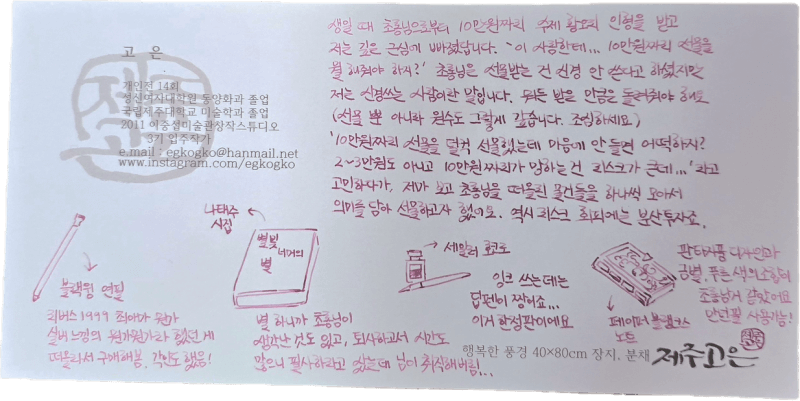 고 은
개인전 14회
성신여자대학원 동양화과 졸업
국립제주대학교 미술학과 졸업
2011 이중섭미술관창작스튜디오
3기 입주작가
e.mail : egkogko@hanmail.net
www.instagram.com/egkogko
생일 때 초롱님으로부터 10만원짜리 수제 황요의 인형을 받고
저는 깊은 근심에 빠졌답니다. "이 사람한테... 10만원짜리 선물을
뭘 해줘야 하지?' 초롱님은 선물받는 건 신경 안 쓴다고 하셨지만
저는 신경쓰는 사람이란 말입니다. 뭐든 받은 만큼은 돌려줘야 해요
(선물 뿐 아니라 원수도 그렇게 갚습니다. 조심하세요)
'10만원짜리 선물을 덜컥 선물했는데 마음에 안 들면 어떡하지?
2~3만원도 아니고 10만원짜리가 망하는 건 리스크가 큰데...'라고
고민하다가, 제가 보고 초롱님을 떠올린 물건들을 하나씩 모아서
의미를 담아 선물하고자 했어요. 역시 리스크 회피에는 분산투자죠.
블랙윙 연필
1999
실버 느낌의
떠올라서 구매해봄. 각인도 했음!
나태주
시집
별빛
너머의
별
별 하니까 초롱님이
생각난 것도 있고, 퇴사하고서 시간도
많으니 필사하라고 샀는데 님이 취직해버림...
세일러
잉크 쓰는데는
딥펜이 짱이죠...
이거 한정판이에요
페이퍼블랭크스
노트
판타지풍 디자인과
금별, 푸른 색의 조합이
초롱님거 같았어요
만년필 사용가능!
행복한 풍경 40×80cm 장지, 분채
제주고은